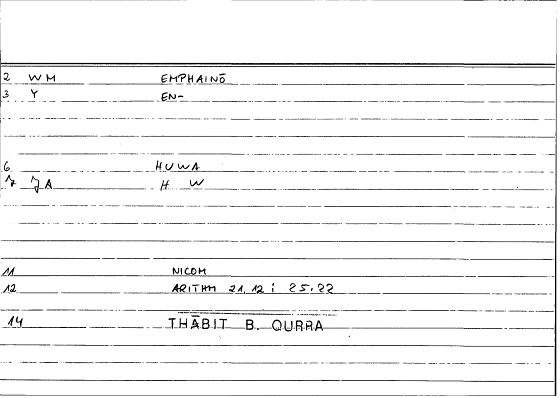 2 WM EMPHAINŌ
3 Y EN-
6 HUWA
7 JA H W
11 NICOM
12 ARITHM 21,12 ; 25.22
14 THĀBIT B. QURRA